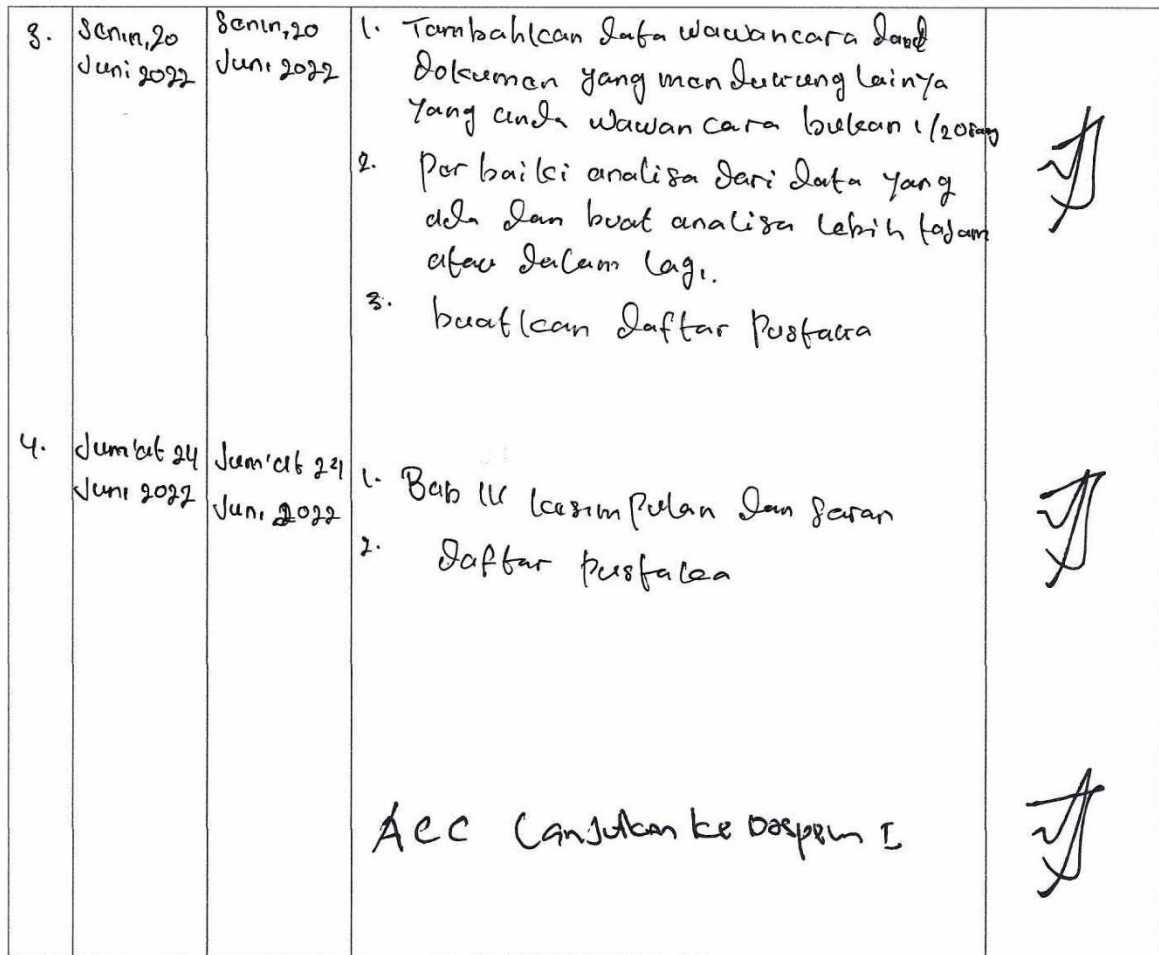 3.
Senin, 20
Juni 2022
Senin, 20
Juni 2022
1. Tambahkan data wawancara dan
dokumen yang mendukung lainya
yang anda wawancara bukan 1/20rang
2. Perbaiki analisa dari data yang
ada dan buat analisa lebih tajam
atau dalam lagi.
3. buatkan daftar Pustaka
4.
Jum'at 24
Juni 2022
Jum'at 24
Juni 2022
1. Bab IV kesimpulan dan saran
2. daftar pustaka
ACC Lanjutkan ke Dospem I